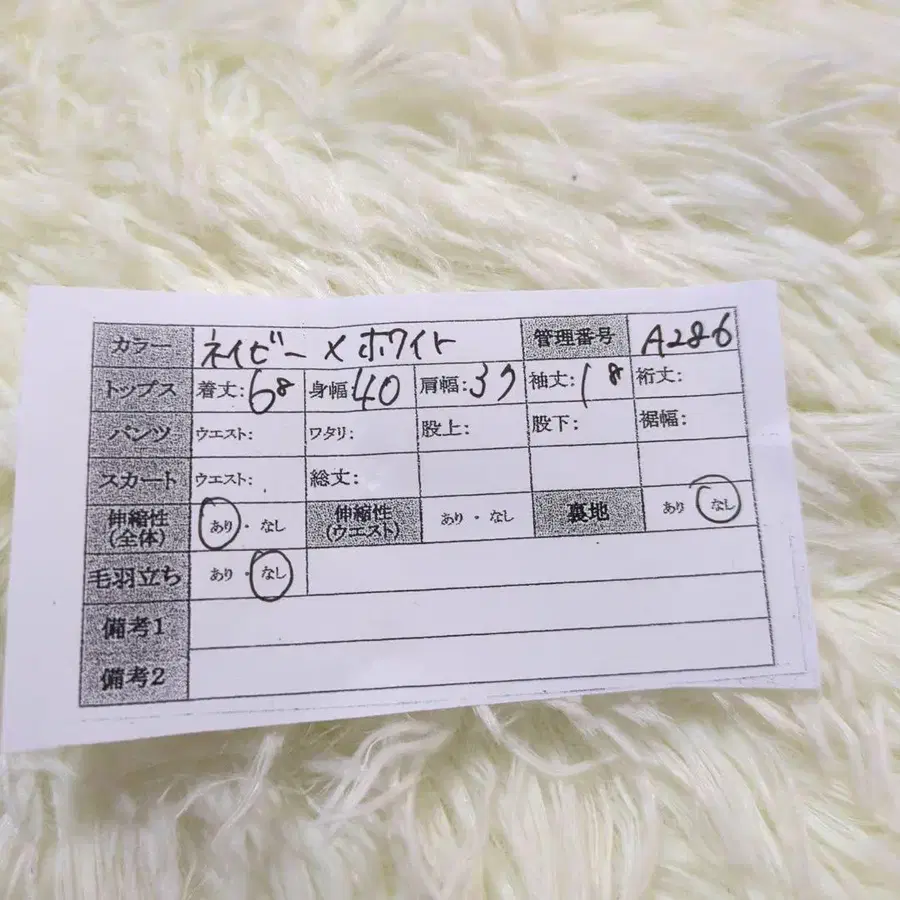 カラー ネイビー×ホワイト 管理番号 A286
トップス 着丈:68 身幅:40 肩幅:37 袖丈:18 裄丈:
パンツ ウエスト: ワタリ: 股上: 股下: 裾幅:
スカート ウエスト: 総丈:
伸縮性(全体) あり・なし 伸縮性(ウエスト) あり・なし 裏地 あり なし
毛羽立ち あり・なし
備考1
備考2